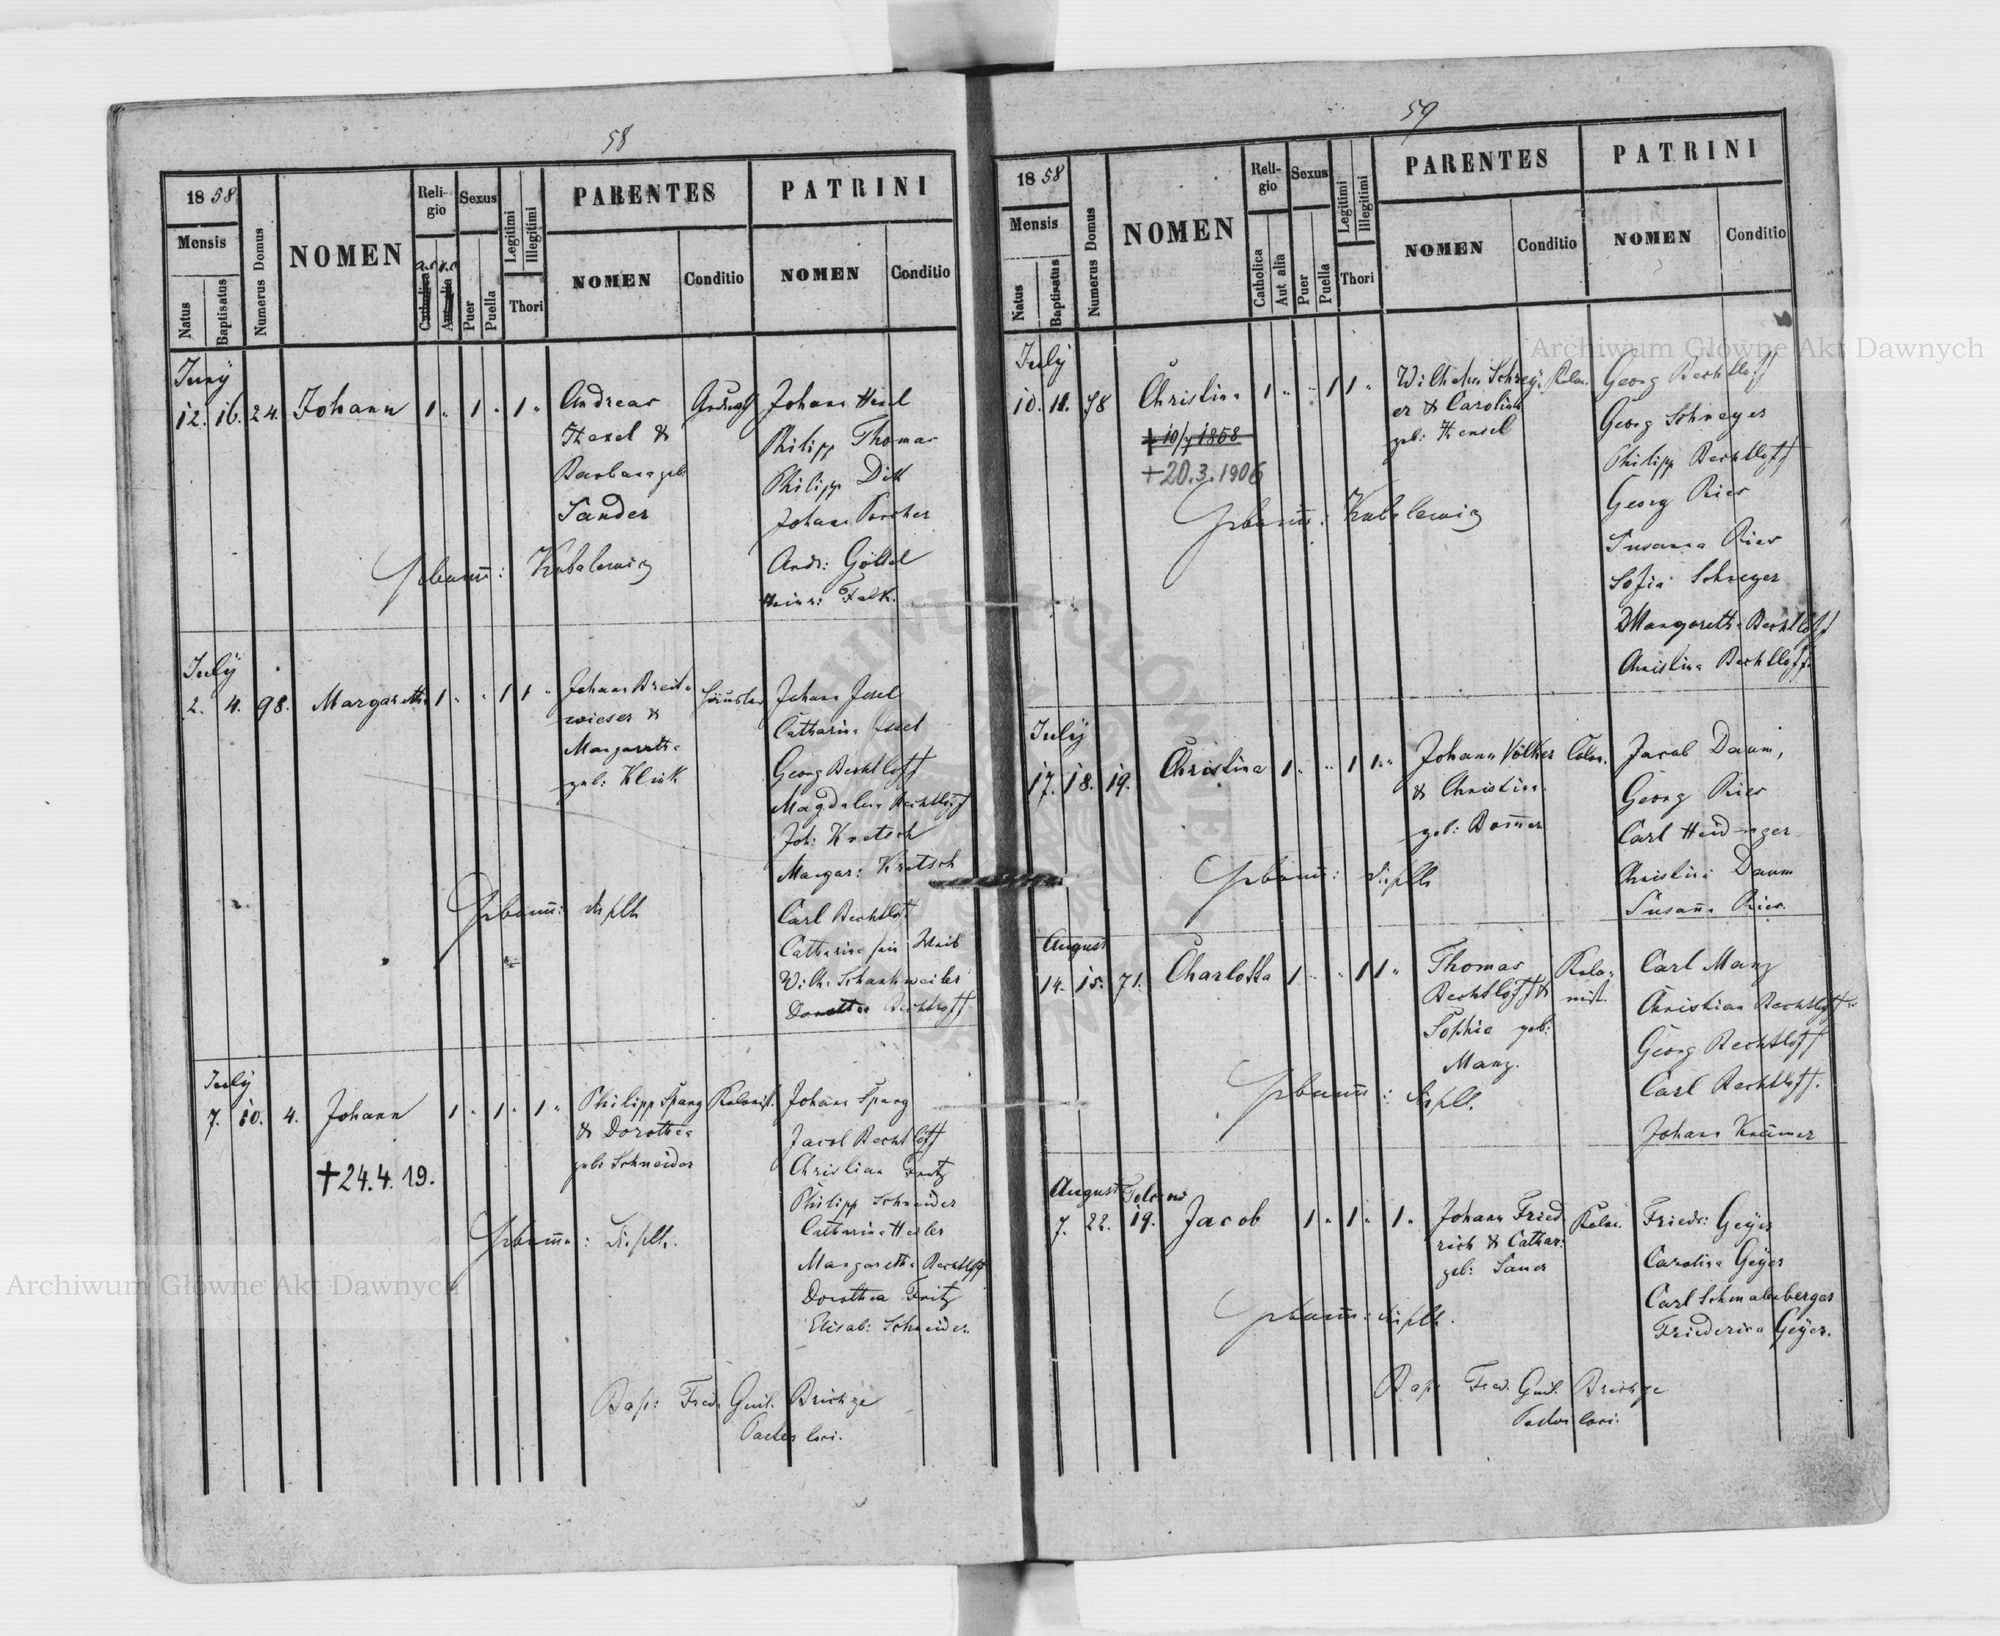 58
1858
Mensis
Natus
Baptisatus
Numerus Domus
NOMEN
Religio
a.c. h.c.
Catholica
Aut alia
Sexus
Puer
Puella
Legitimi
Illegitimi
Thori
PARENTES
NOMEN
Conditio
PATRINI
NOMEN
Conditio
Juny
12. 16. 24. Johann 1 " 1 " 1 "
Andreas
Hexel &
Barbara geb:
Sander
Johann Hexel
Philipp Thomas
Philipp Dill
Johann Porcher
Andr: Göttel
Heinr: Falk.
Kubalewicz
July
2. 4. 98. Margaretha 1 " " 1 1 "
Johann Breit=
wieser &
Margaretha
geb: Klink
Johann Josel
Catharina Josel
Georg Bechtloff
Magdalena Bechtloff
Joh: Kretsch
Margar: Kretsch
Carl Bechtloff
Catharina sein Weib
Wilh: Schankweiler
Dorothea Bechtloff
July
7. 10. 4. Johann 1 " 1 " 1 "
+24.4.19.
Philipp Spang
& Dorothea
geb: Schneider
Kolonist.
Johann Spang
Jacob Bechtloff
Christian Fritz
Philipp Schneider
Catharina Hexler
Margaretha Bechtloff
Dorothea Fritz
Elisab: Schneider.
Bap: Fred. Guil. Brichze
Pastor loci.
59
1858
Mensis
Natus
Baptisatus
Numerus Domus
NOMEN
Religio
Catholica
Aut alia
Sexus
Puer
Puella
Legitimi
Illegitimi
Thori
PARENTES
NOMEN
Conditio
PATRINI
NOMEN
Conditio
July
10. 11. 78 Christina 1 " " 1 1 "
+10/7 1858
+20.3.1906
Wilhelm Schrey=
er & Carolina
geb: Hensel
Kolon.
Georg Bechtloff
Georg Schreyer
Philipp Bechtloff
Georg Ries
Susanna Ries
Sofia Schreyer
Margaretha Bechtloff
Christina Bechtloff.
Kubalewicz
July
17. 18. 19. Christina 1 " " 1 1 "
Johann Völker
& Christina
geb: Bommer
Colon.
Jacob Daum,
Georg Ries
Carl Heidinger
Christina Daum
Susanna Ries.
August
14. 15. 71. Charlotta 1 " " 1 1 "
Thomas
Bechtloff &
Sophia geb:
Manz.
Kolo=
nist.
Carl Manz
Christian Bechtloff
Georg Bechtloff
Carl Bechtloff.
Johann Krämer
August
7. 22. 19. Jacob 1 " 1 " 1 "
Johann Fried=
rich & Cathar:
geb: Sauer
Kolon.
Friedr: Geyer
Carolina Geyer
Carl Schmalenberger
Friederica Geyer.
Bap: Fred. Guil. Brichze
Pastor loci.
Archiwum Główne Akt Dawnych
Archiwum Główne Akt Dawnych